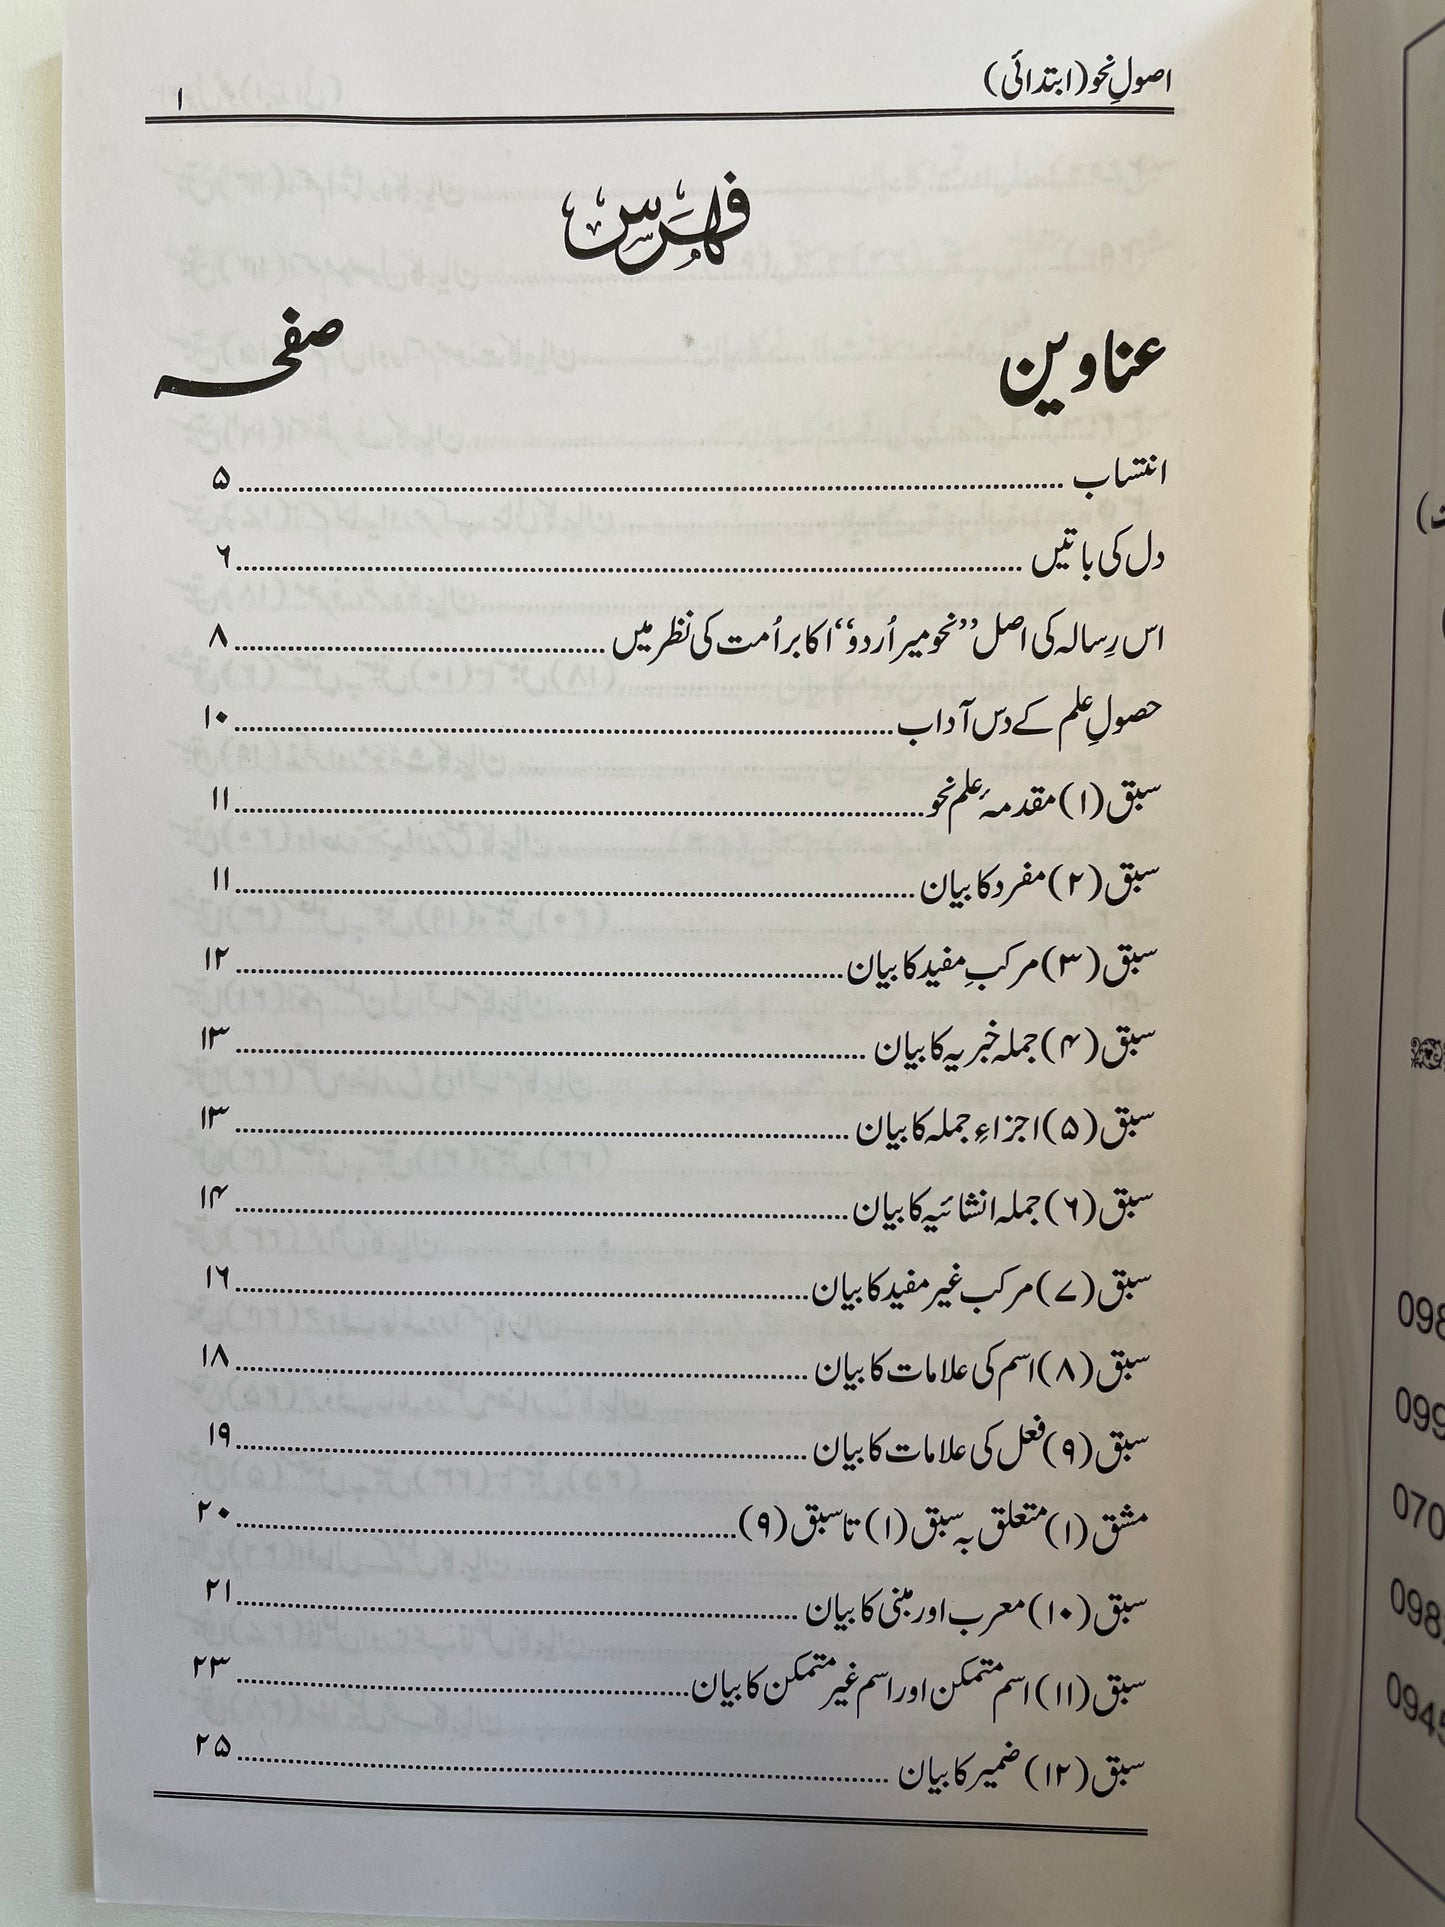 اصولِ نحو (ابتدائی) ۱
فہرس
عناوین صفحہ
انتساب ........ ۵
دل کی باتیں ........ ۶
اس رِسالہ کی اصل ’’نحومیر اُردو‘‘ اکابر اُمت کی نظر میں ........ ۸
حصولِ علم کے دس آداب ........ ۱۰
سبق (۱) مقدمۂ علم نحو ........ ۱۱
سبق (۲) مفرد کا بیان ........ ۱۱
سبق (۳) مرکبِ مفید کا بیان ........ ۱۲
سبق (۴) جملہ خبریہ کا بیان ........ ۱۳
سبق (۵) اجزاءِ جملہ کا بیان ........ ۱۳
سبق (۶) جملہ انشائیہ کا بیان ........ ۱۴
سبق (۷) مرکب غیر مفید کا بیان ........ ۱۶
سبق (۸) اسم کی علامات کا بیان ........ ۱۸
سبق (۹) فعل کی علامات کا بیان ........ ۱۹
مشق (۱) متعلق بہ سبق (۱) تا سبق (۹) ........ ۲۰
سبق (۱۰) معرب اور مبنی کا بیان ........ ۲۱
سبق (۱۱) اسم متمکن اور اسم غیر متمکن کا بیان ........ ۲۳
سبق (۱۲) ضمیر کا بیان ........ ۲۵
098
099
070
098
0945